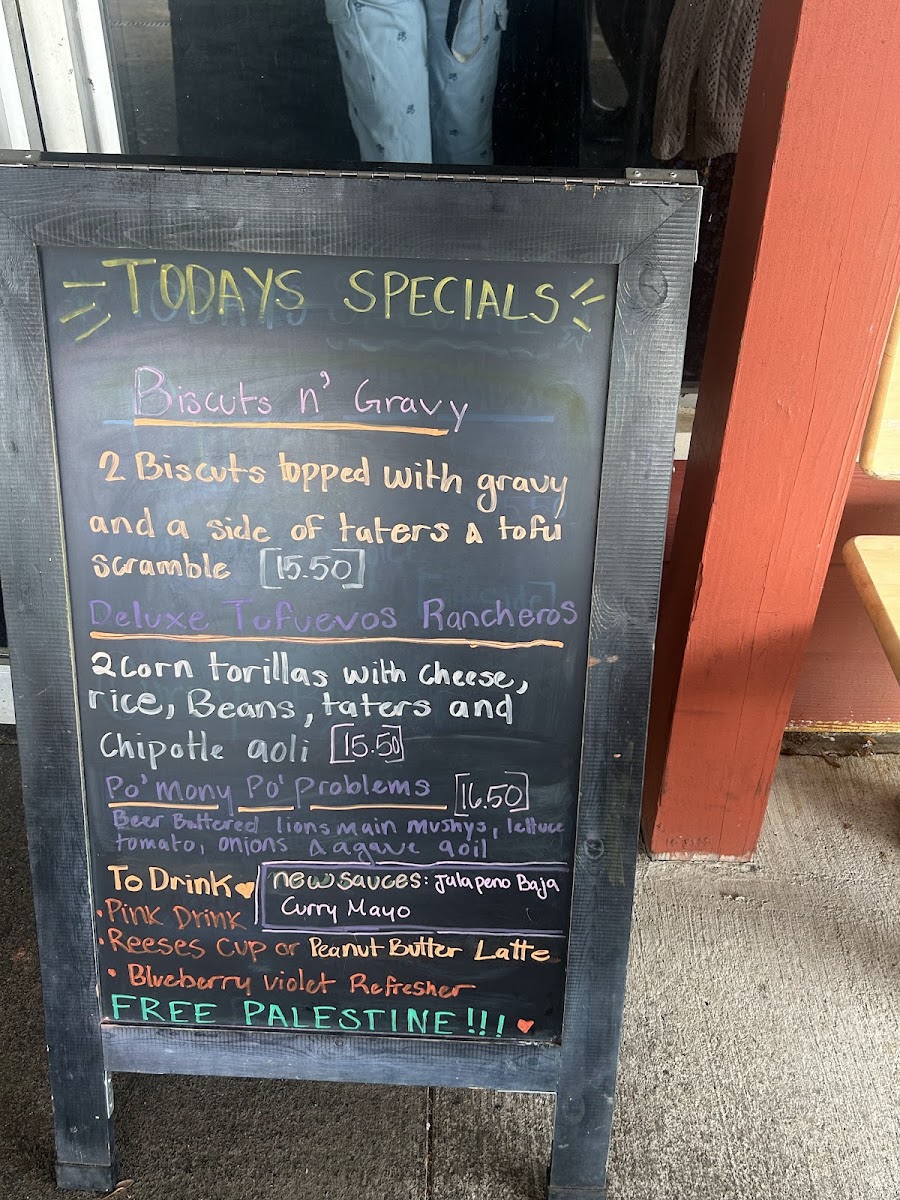 TODAYS SPECIALS
Biscuts n' Gravy
2 Biscuts topped with gravy
and a side of taters & tofu
scramble [15.50]
Deluxe Tofuevos Rancheros
2 corn torillas with cheese,
rice, Beans, taters and
Chipotle aoli [15.50]
Po' mony Po' Problems [16.50]
Beer Battered lions main mushys, lettuce
tomato, onions & agave aoil
To Drink
new sauces: Jalapeno Baja
Curry Mayo
• Pink Drink
• Reeses Cup or Peanut Butter Latte
• Blueberry violet Refresher
FREE PALESTINE!!!